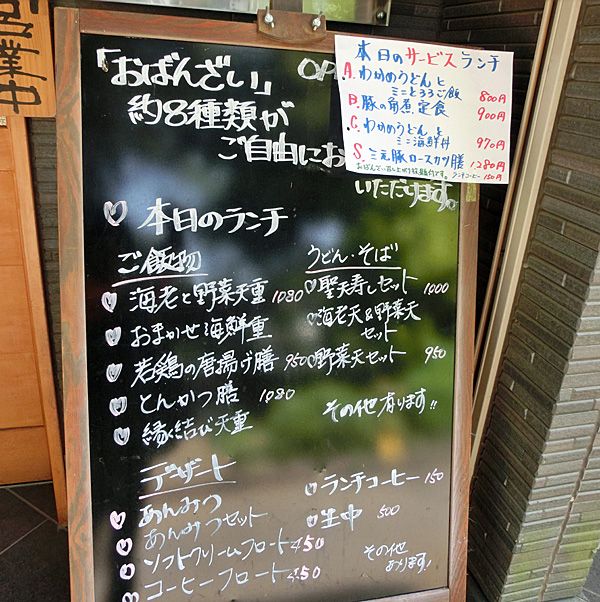 営業中
「おばんざい」
約8種類が
ご自由にお
いただけます。
OP
本日のサービスランチ
A. わかめうどんと
ミニとろろご飯 800円
B. 豚の角煮定食 900円
C. わかめうどんと
ミニ海鮮丼 970円
S. 三元豚ロースカツ膳 1280円
ランチコーヒー150円
♡ 本日のランチ
ご飯物
海老と野菜天重 1080
おまかせ海鮮重
若鶏の唐揚げ膳 950
とんかつ膳 1080
縁結び天重
うどん・そば
聖天寿しセット 1000
海老天&野菜天
セット
野菜天セット 950
その他有ります!!
デザート
あんみつ
あんみつセット
ソフトクリームフロート 450
コーヒーフロート 450
ランチコーヒー 150
生中 500
その他
あります!